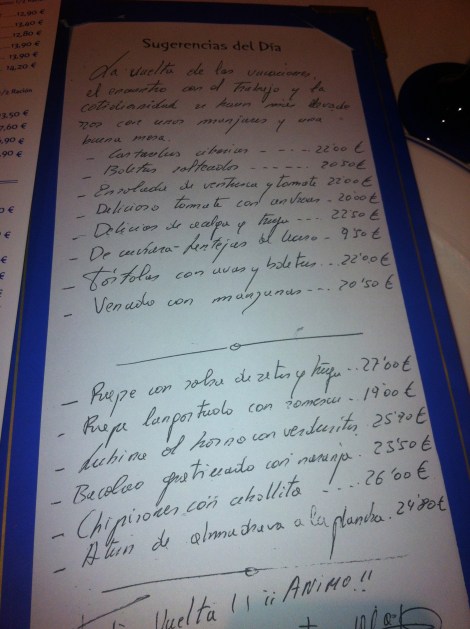 12,90 €
13,40 €
12,80 €
13,90 €
13,90 €
14,20 €
1/2 Ración
13,50 €
7,60 €
,90 €
,90 €
Sugerencias del Día
La vuelta de las vacaciones,
el encuentro con el trabajo y la
cotidianidad se hacen más
con unos manjares y una
buena mesa.
- ibéricas ---- 22'00 €
- Boletus salteados ----- 20'50 €
- Ensalada de ventresca y tomate 22'00 €
- Delicioso tomate con - 20'00 €
- Delicias de y 22'50 €
- De cuchara - Lentejas - 9'50 €
- Tórtolas con uvas y boletus... 22'00 €
- Venado con manzanas --- 20'50 €
- Rape con salsa de setas y ..27'00 €
- Rape con romescu - 19'00 €
- Lubina al horno con verduritas. 25'90 €
- Bacalao gratinado con naranja. 23'50 €
- Chipirones con cebollita ---- 26'00 €
- Atún de almadrava a la plancha. 24'80 €
Vuelta !! ¡¡ ANIMO !!